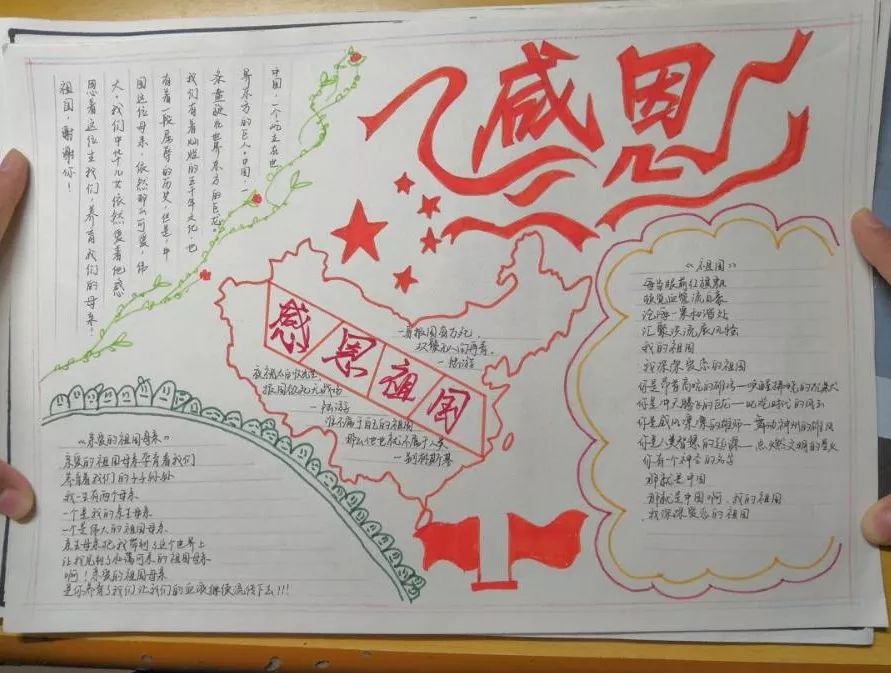 感恩
中国，一个屹立在世
界东方的巨人。中国，一
条盘旋在世界东方的巨龙。
我们有着灿烂的五千年文化，也
有着一段屈辱的历史，但是，中
国这位母亲，依然那么可爱，伟
大。我们中华儿女依然爱着他感
恩着这位生我们，养育我们的母亲！
祖国，谢谢你！
感恩祖国
一身报国有万死，
双鬓向人无再青。
—陆游
夜视太白收光芒
报国欲死无战场
—陆游
谁不属于自己的祖国
那么他也就不属于人类
—别林斯基
《亲爱的祖国母亲》
亲爱的祖国母亲孕育着我们
养育着我们的子子孙孙
我一共有两个母亲
一个是我的亲生母亲
一个是伟大的祖国母亲
亲生母亲把我带到了这个世界上
让我见到了和蔼可亲的祖国母亲
啊！亲爱的祖国母亲
是你养育了我们让我们的血液继续流传下去!!!
《祖国》
每当眼前红旗飘
顿觉血管流自豪
沧海一粟和谐处
汇聚洪流展风骚
我的祖国
我深深爱恋的祖国
你是
你是冲天腾飞的巨龙—叱咤时代的风云
你是威风凛凛的雄狮—舞动神州的雄风
你是人类智慧的起源—点燃文明的星火
你有一个神圣的名字
那就是中国
那就是中国啊，我的祖国
我深深爱恋的祖国